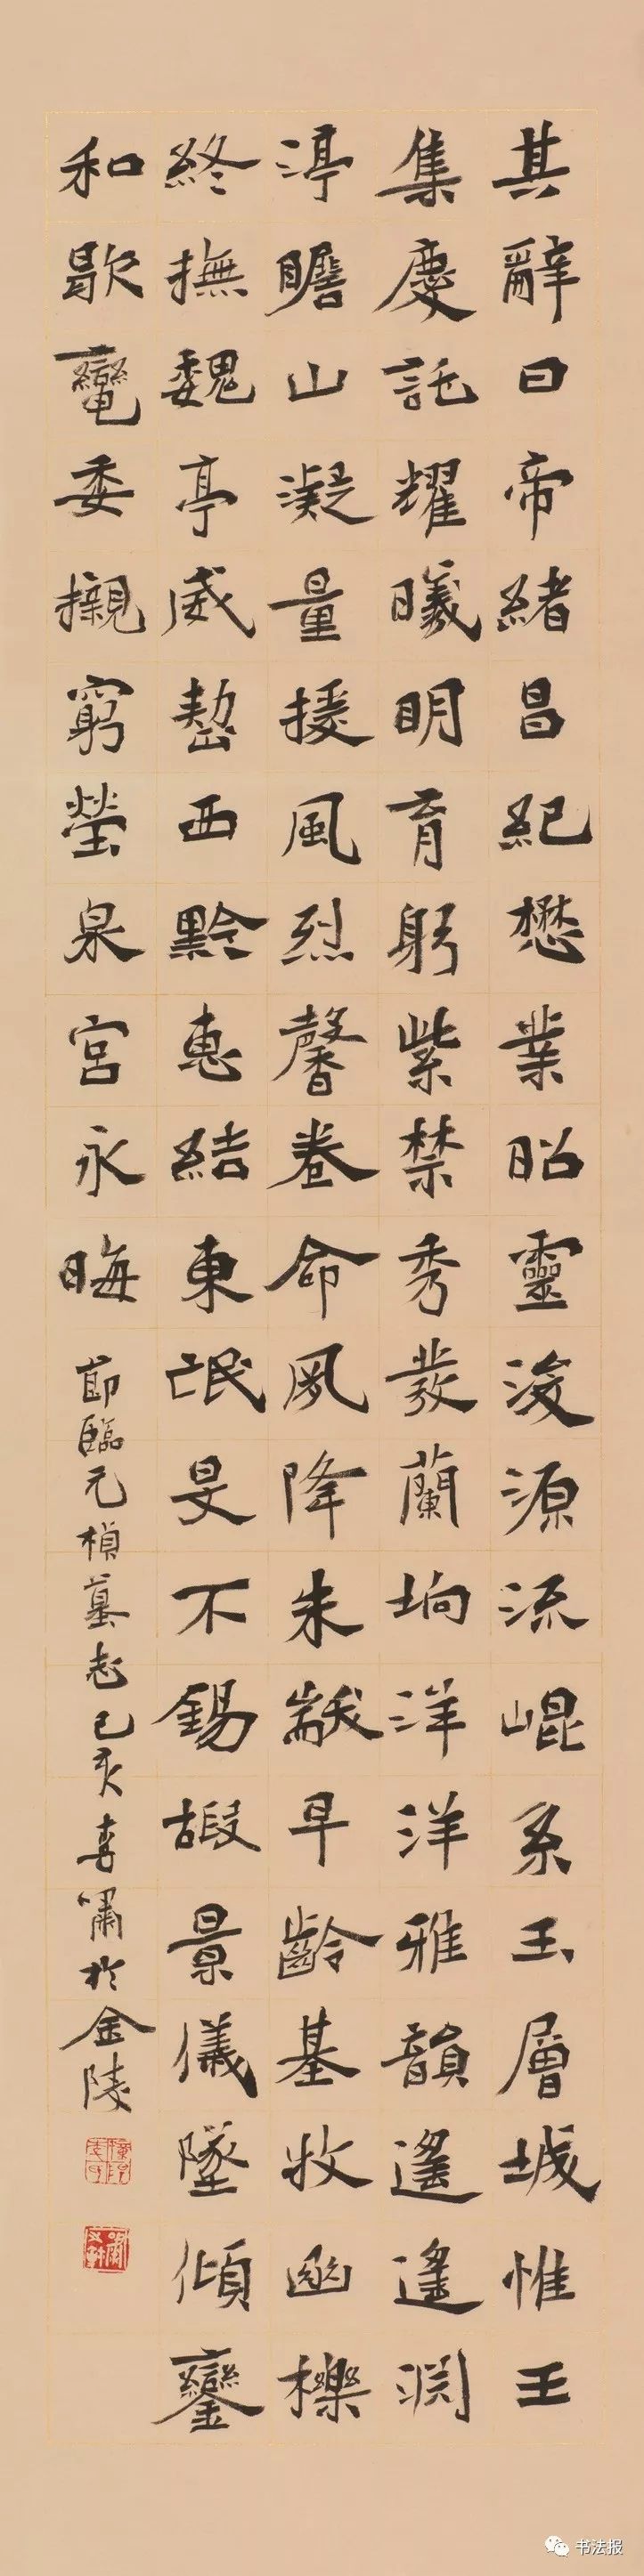 其辭曰帝緒昌紀懋業昭靈浚源流崐系玉層城惟王
集慶託耀曦明育躬紫禁秀發蘭坰洋洋雅韻遙遙淵
渟瞻山凝量援風烈馨卷命夙降朱黻早齡基牧豳櫟
終撫魏亭威整西黔惠結東氓旻不錫嘏景儀墜傾鑾
和歇鞏委櫬窮塋泉宮永晦
節臨元楨墓志己亥春嘯於金陵
书法报